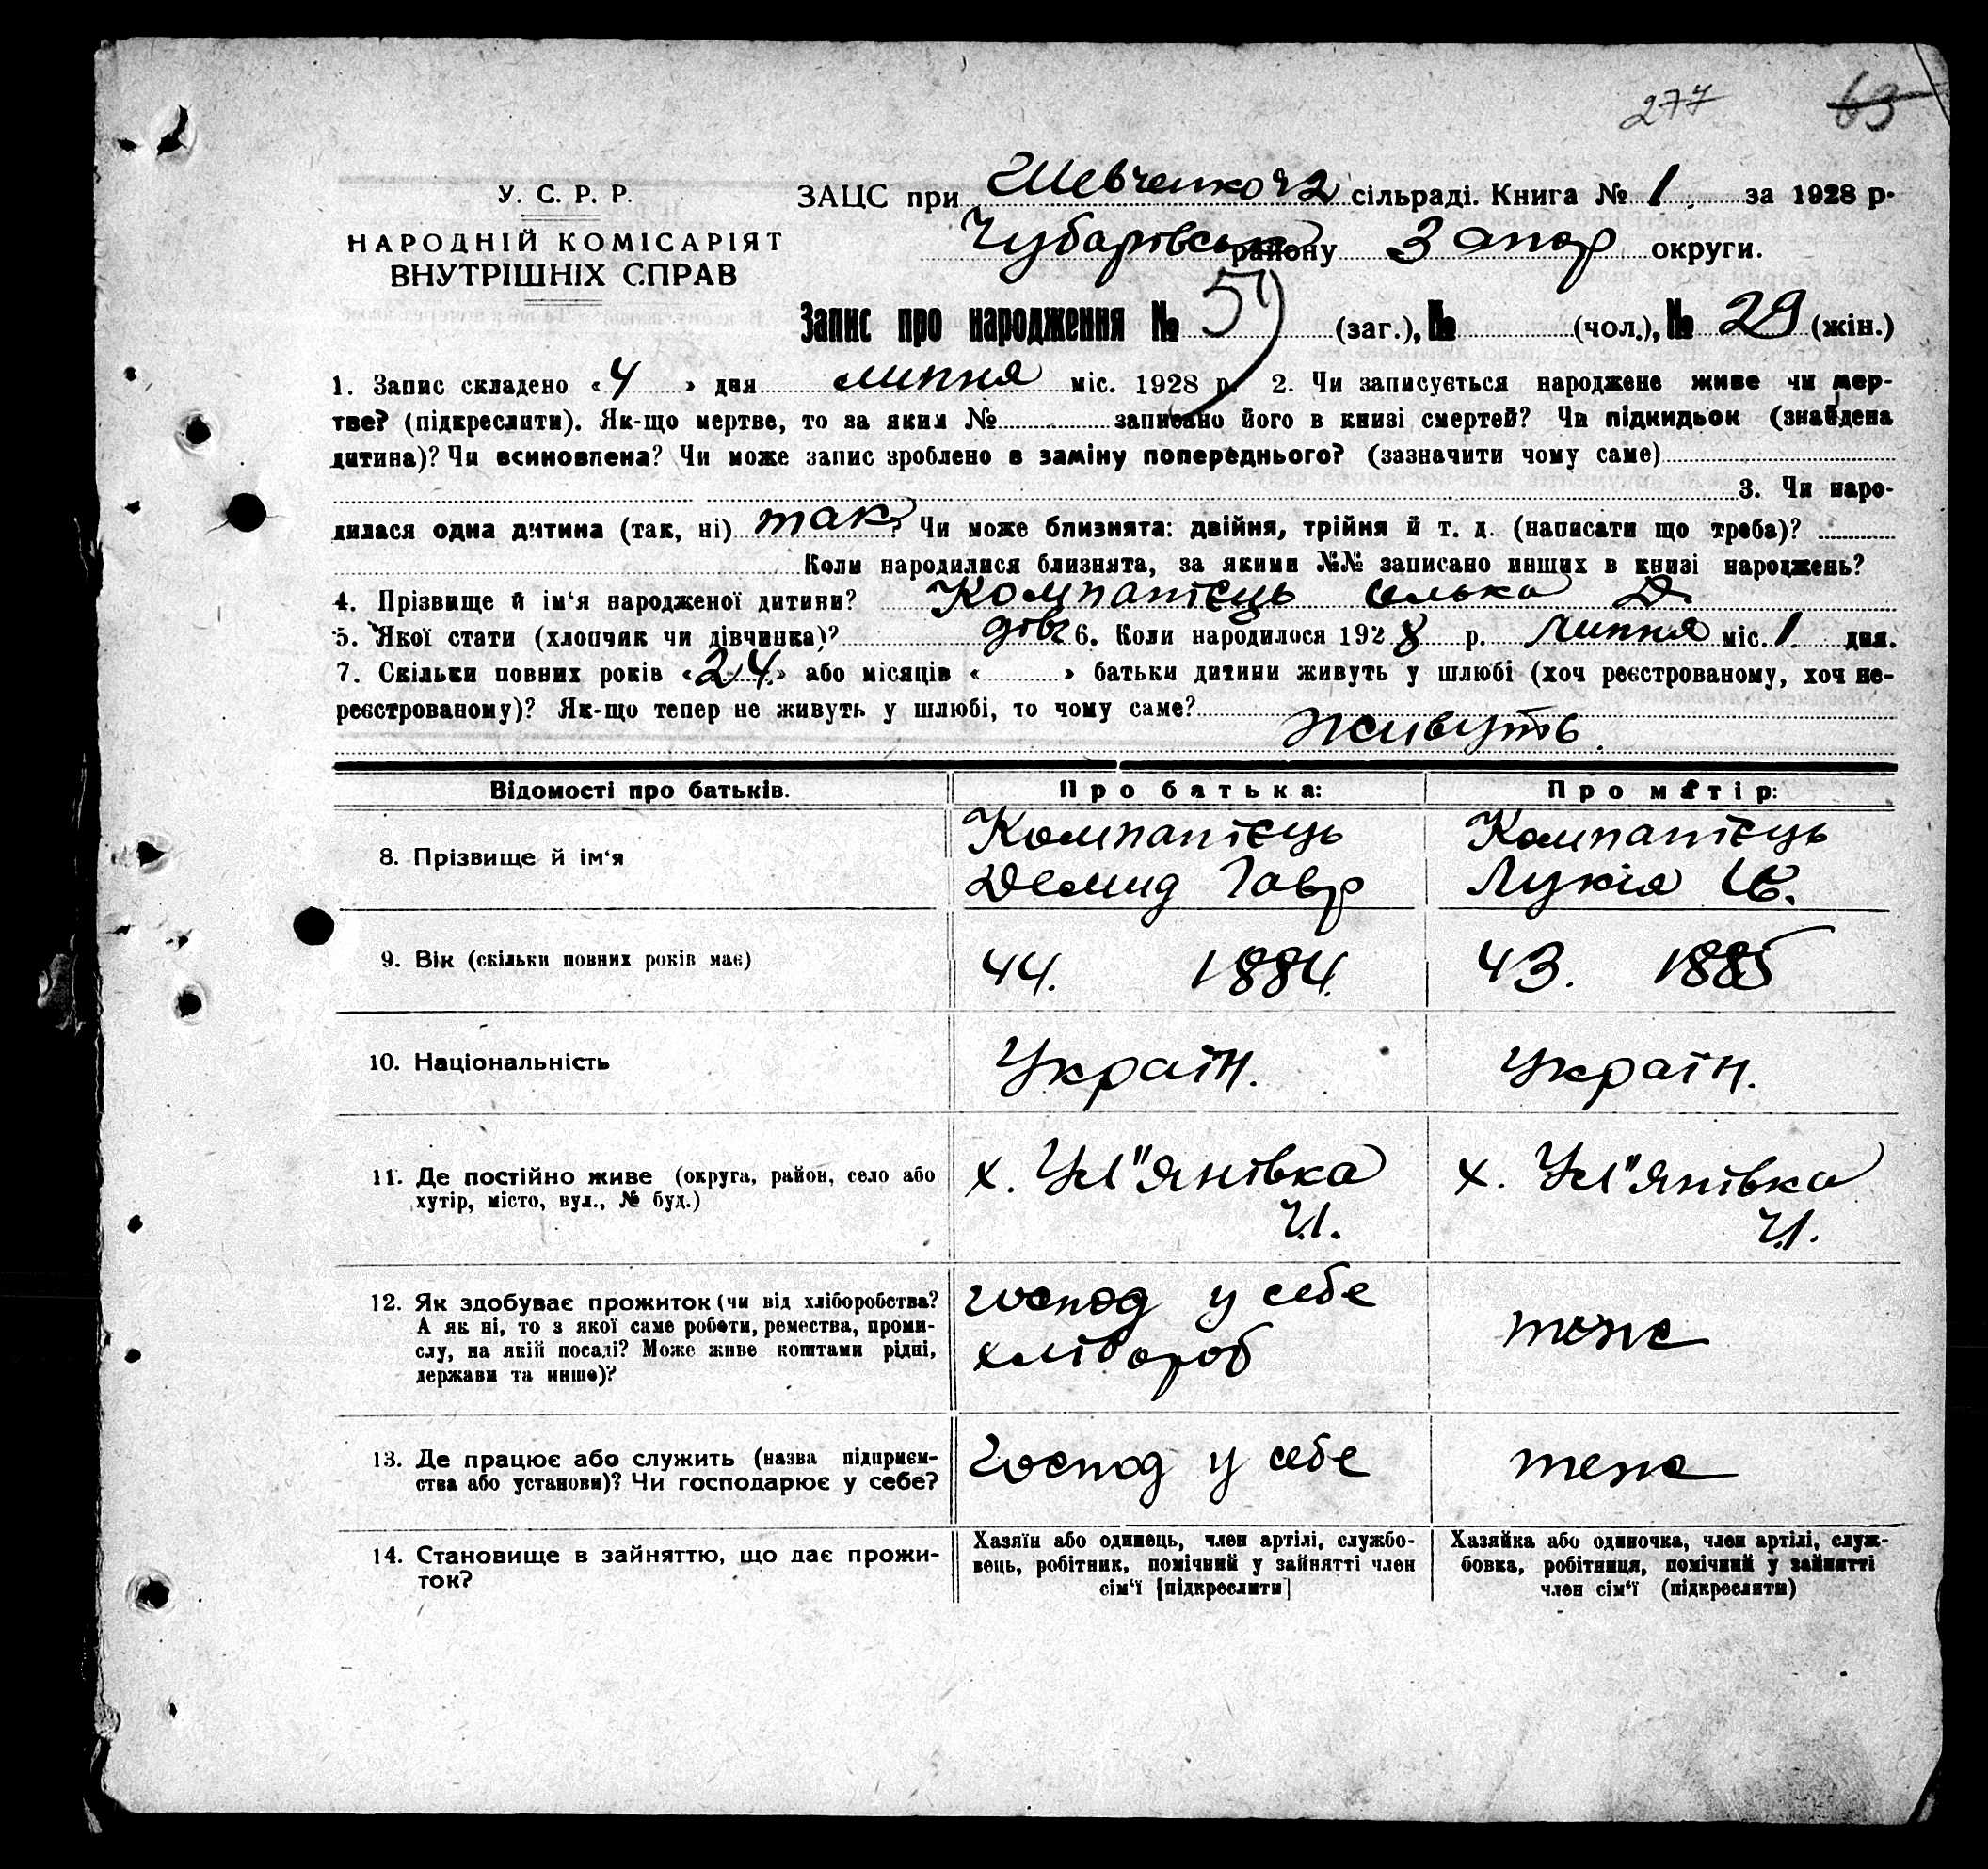 277 63
У. С. Р. Р.
НАРОДНІЙ КОМІСАРІЯТ
ВНУТРІШНІХ СПРАВ
ЗАЦС при Шевченко 2 сільраді. Книга № 1. за 1928 р.
Чубарівськ району Запор округи.
Запис про народження № 57 (заг.), № (чол.), № 29 (жін.)
1. Запис складено «4» дня липня міс. 1928 р. 2. Чи записується народжене живе чи мер-
тве? (підкреслити). Як-що мертве, то за яким № записано його в книзі смертей? Чи підкидьок (знайдена
дитина)? Чи всиновлена? Чи може запис зроблено в заміну попереднього? (зазначити чому саме)
3. Чи наро-
дилася одна дитина (так, ні) так? Чи може близнята: двійня, трійня й т. д. (написати що треба)?
Коли народилися близнята, за якими №№ записано инших в книзі народжень?
4. Прізвище й ім‘я народженої дитини? Компанієць Олька Д.
5. Якої стати (хлопчик чи дівчинка)? дівч 6. Коли народилося 1928 р. липня міс. 1. дня.
7. Скільки повних років «24» або місяців « » батьки дитини живуть у шлюбі (хоч реєстрованому, хоч не-
реєстрованому)? Як-що тепер не живуть у шлюбі, то чому саме?
живуть.
Відомості про батьків. Про батька: Про матір:
8. Прізвище й ім‘я
Компанієць Компанієць
Демид Гавр Лукія Ів.
9. Вік (скільки повних років має) 44. 1884. 43. 1885
10. Національність Україн. Україн.
11. Де постійно живе (округа, район, село або
хутір, місто, вул., № буд.)
х. Ул"янівка х. Ул"янівка
Ч.1. Ч.1.
12. Як здобуває прожиток (чи від хліборобства?
А як ні, то з якої саме роботи, ремества, проми-
слу, на якій посаді? Може живе коштами рідні,
держави та инше)?
господ у себе
хлібороб
теж
13. Де працює або служить (назва підприєм-
ства або установи)? Чи господарює у себе?
Господ у себе теж
14. Становище в зайняттю, що дає прожи-
ток?
Хазяїн або одинець, член артілі, службо-
вець, робітник, помічний у зайнятті член
сім‘ї [підкреслити]
Хазяйка або одиночка, член артілі, служ-
бовка, робітниця, помічний у зайнятті
член сім‘ї (підкреслити)